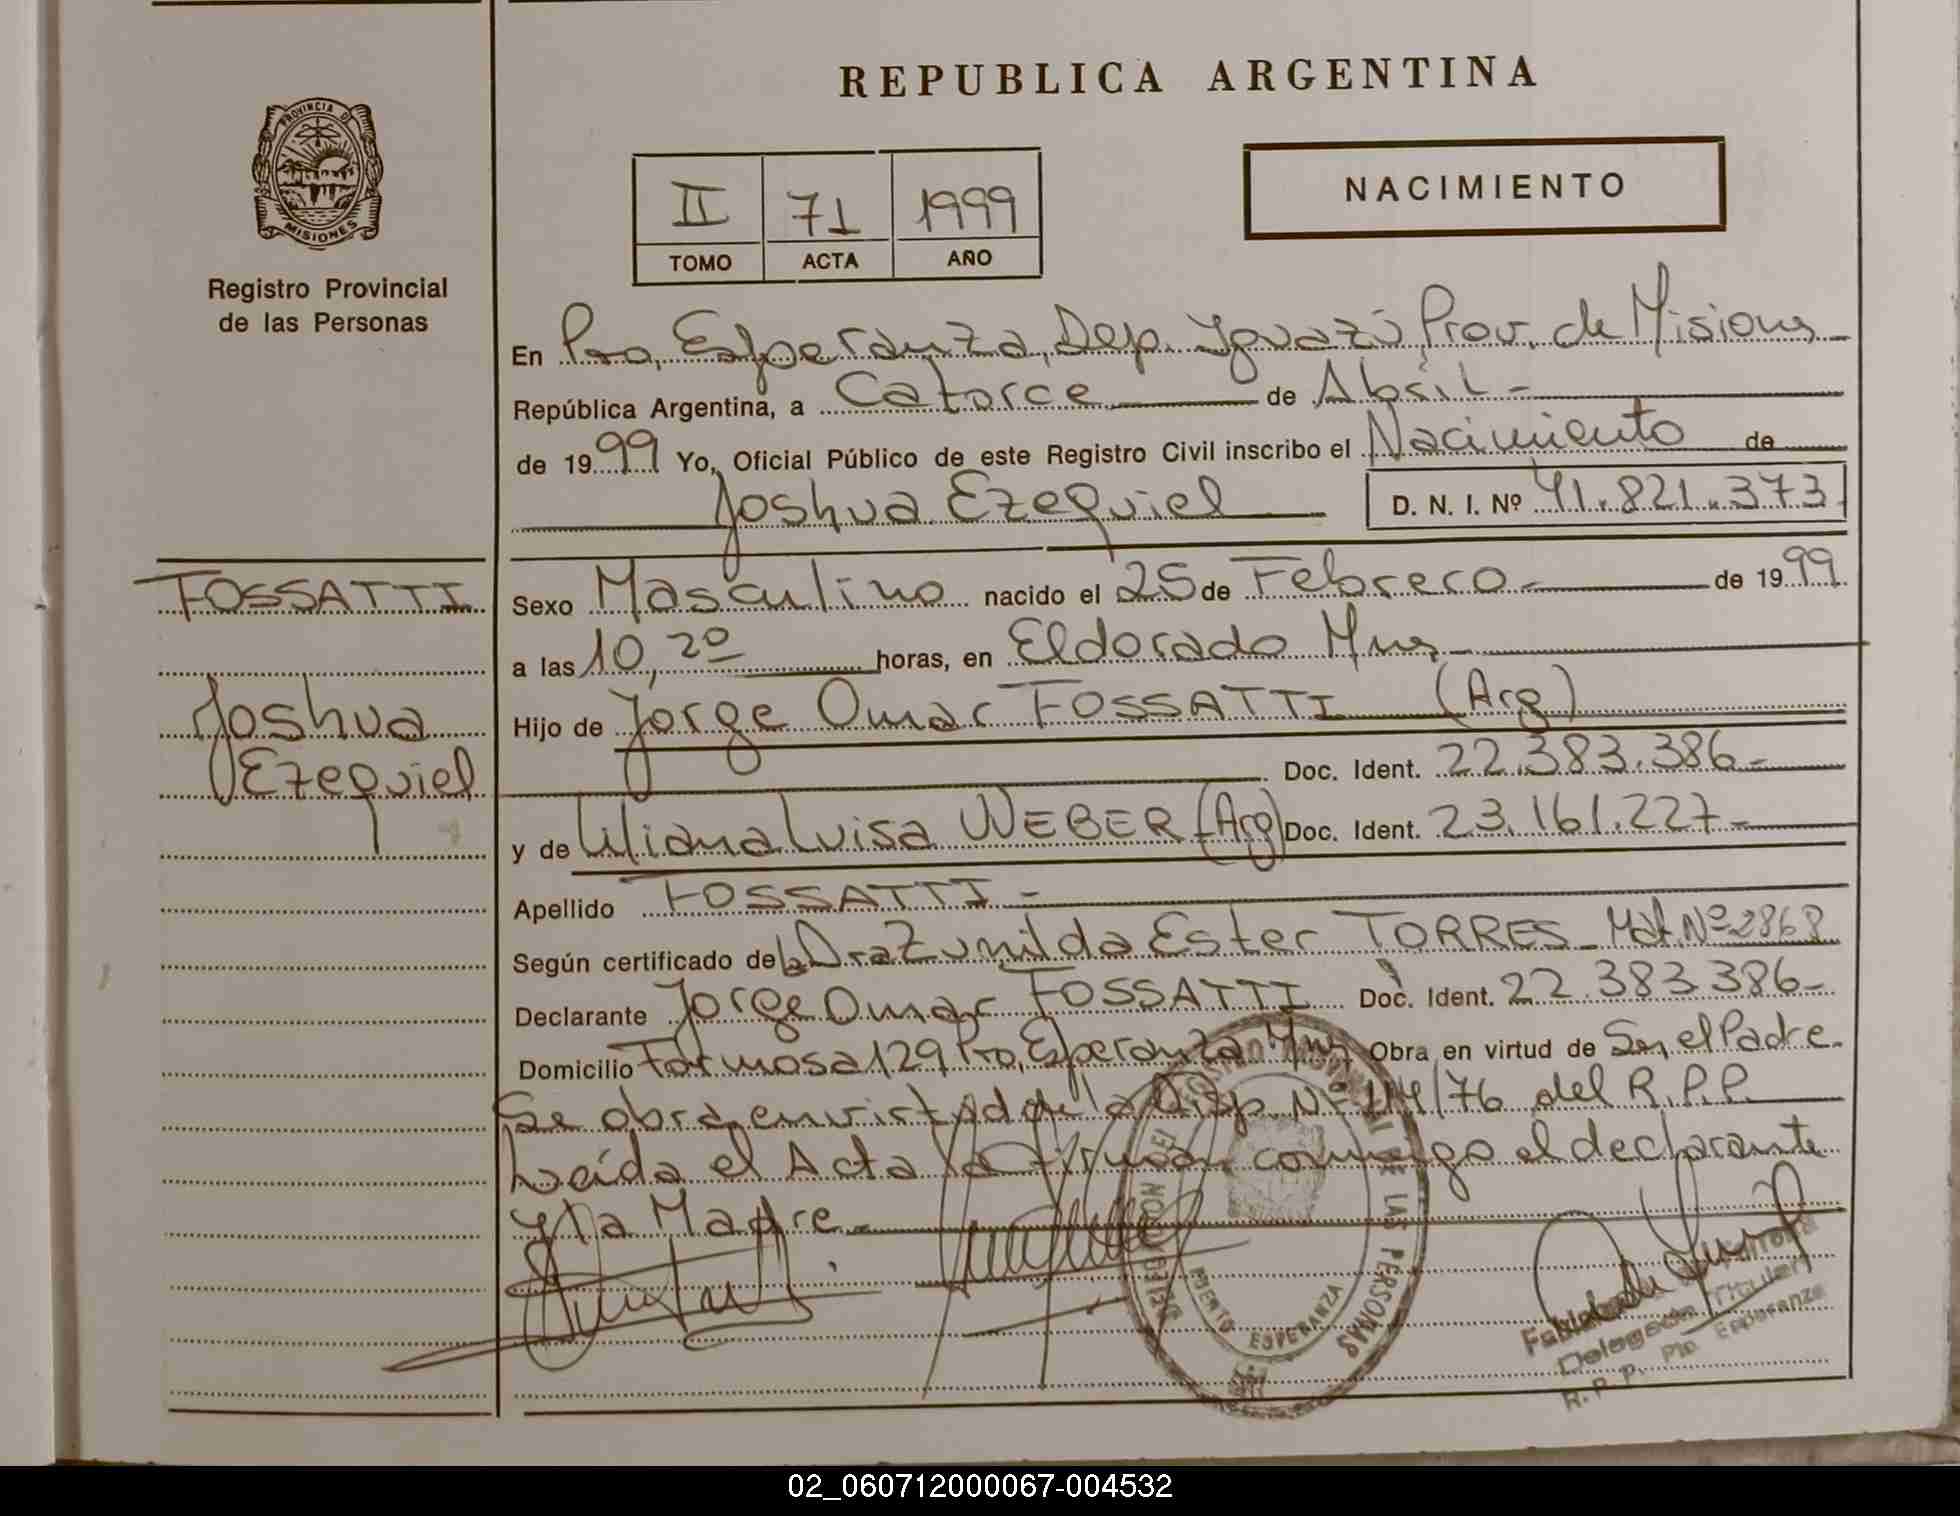 REPUBLICA ARGENTINA
PROVINCIA DE
MISIONES
Registro Provincial
de las Personas
II 71 1999
TOMO ACTA AÑO
NACIMIENTO
En Pto, Esperanza, Dep. Iguazú, Prov. de Misiones
República Argentina, a Catorce de Abril-
de 1999 Yo, Oficial Público de este Registro Civil inscribo el Nacimiento de
Joshua Ezequiel D. N. I. Nº 41.821.373
FOSSATTI
Joshua
Ezequiel
Sexo Masculino nacido el 25 de Febrero.- de 1999
a las 10,20 horas, en Eldorado Mnes-
Hijo de Jorge Omar FOSSATTI (Arg)
Doc. Ident. 22.383.386-
y de Liliana Luisa WEBER (Arg) Doc. Ident. 23.161.227-
Apellido FOSSATTI-
Según certificado de la Dra Zunilda Ester TORRES- Mat. Nº 2868
Declarante Jorge Omar FOSSATTI Doc. Ident. 22.383.386-
Domicilio Formosa 129 Pto, Esperanza Mnes Obra en virtud de Ser el Padre.
Se obra en virtud de la Disp. Nº /76 del R.P.P.
Leída el Acta la firman conmigo el declarante
y la Madre.-
DE LAS PERSONAS
ESPERANZA
Delegada Titular
R. P. P. Pto. Esperanza
02_060712000067-004532